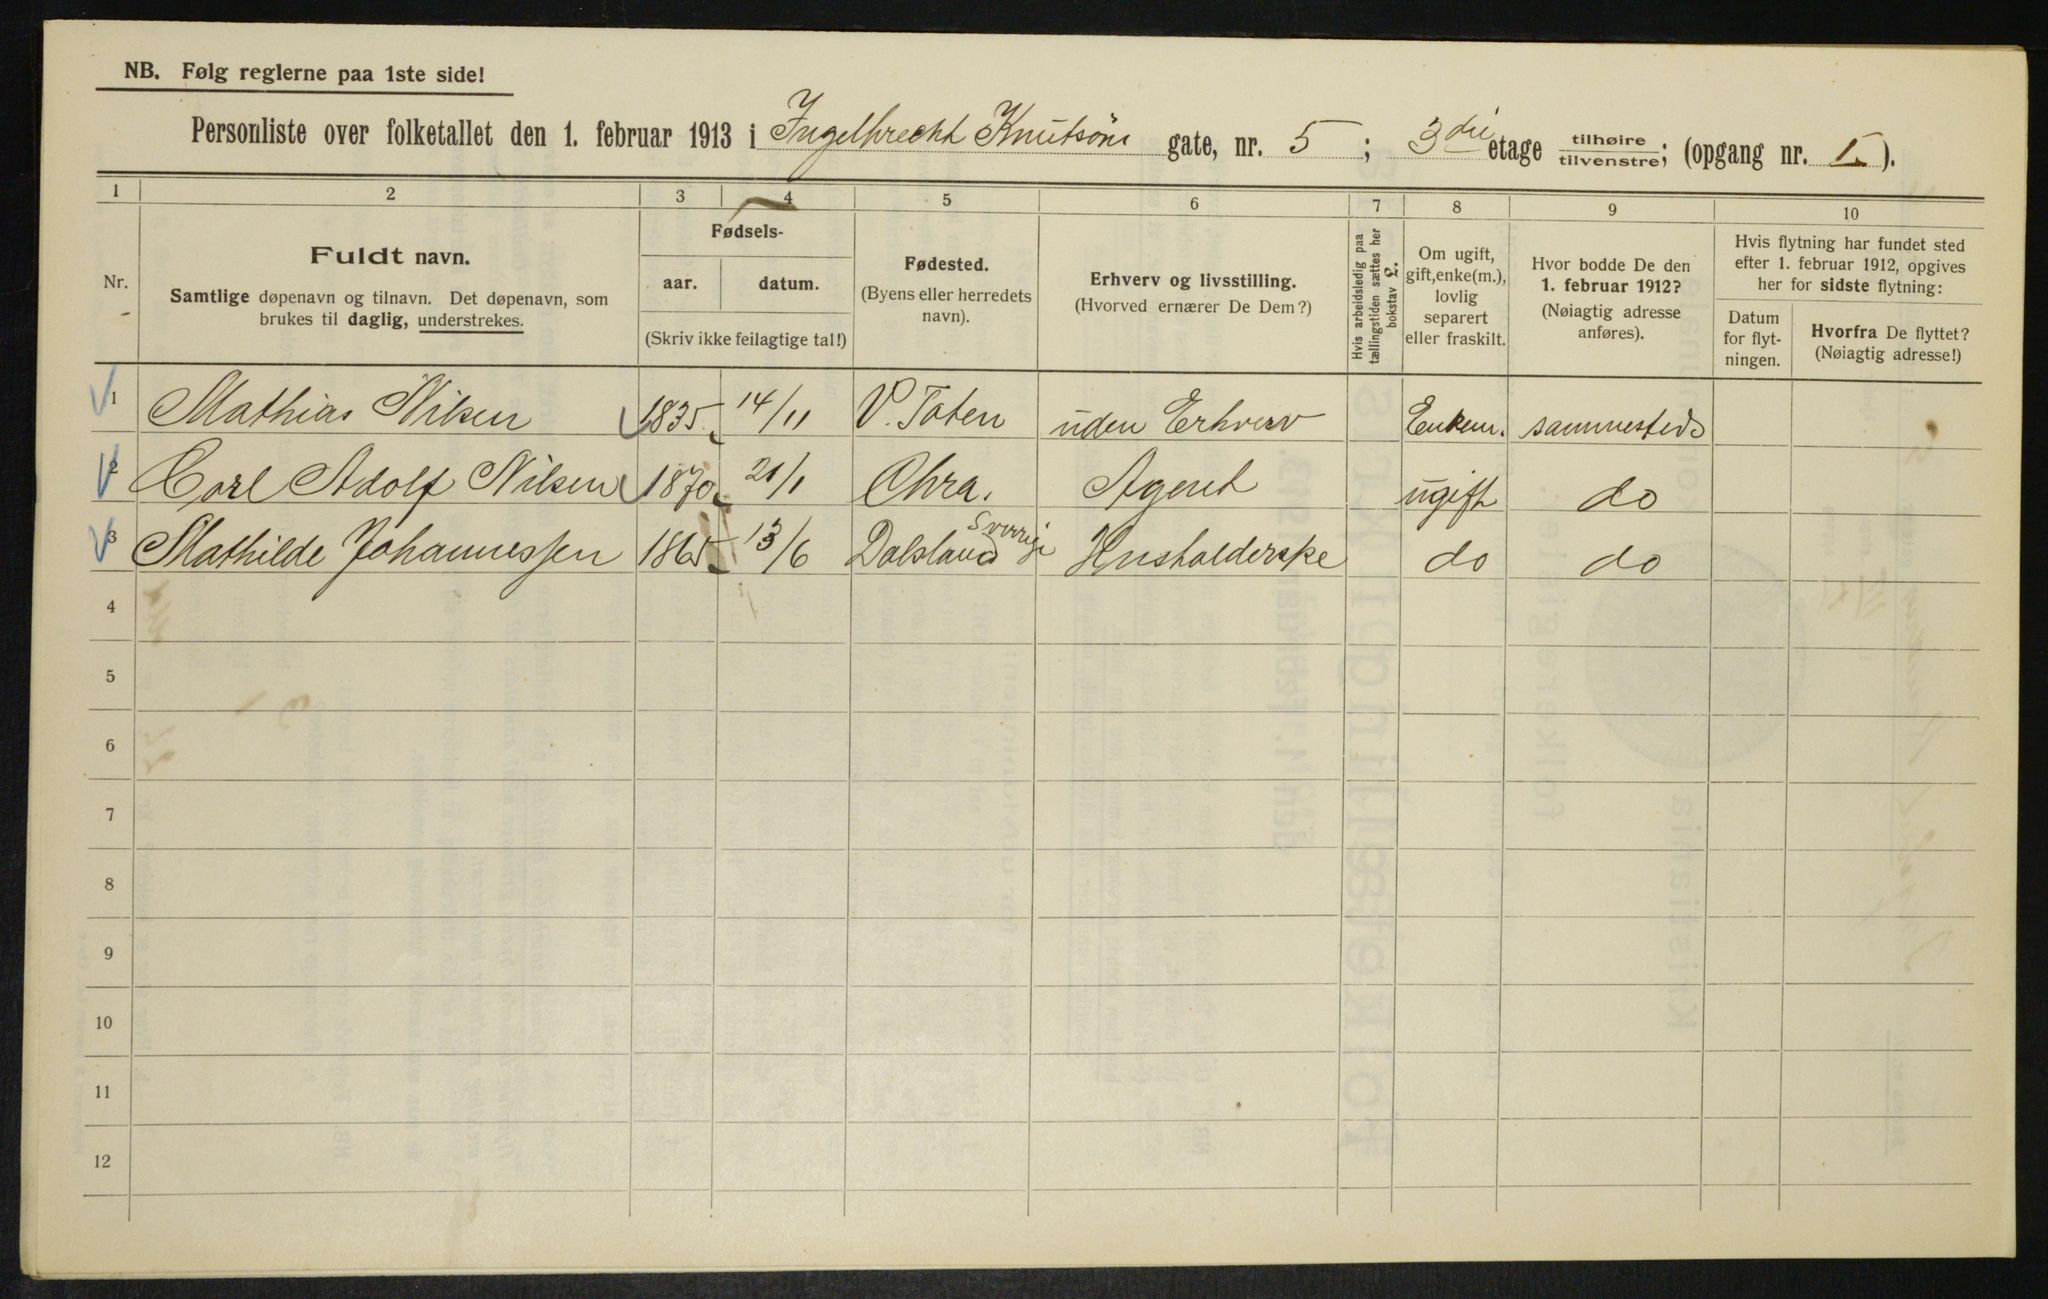 NB. Følg reglerne paa 1ste side!
Personliste over folketallet den 1. februar 1913 i Ingelbrecht Knutsøns gate, nr. 5 ; 3die etage tilhøire/tilvenstre; (opgang nr. I.).
1 2 3 4 5 6 7 8 9 10
Nr.
Fuldt navn.
Samtlige døpenavn og tilnavn. Det døpenavn, som
brukes til daglig, understrekes.
Fødsels-
aar. datum.
(Skriv ikke feilagtige tal!)
Fødested.
(Byens eller herredets
navn).
Erhverv og livsstilling.
(Hvorved ernærer De Dem?)
Hvis arbeidsledig paa
tællingstiden sættes her
bokstav L.
Om ugift,
gift, enke(m.),
lovlig
separert
eller fraskilt.
Hvor bodde De den
1. februar 1912?
(Nøiagtig adresse
anføres).
Hvis flytning har fundet sted
efter 1. februar 1912, opgives
her for sidste flytning:
Datum
for flyt-
ningen.
Hvorfra De flyttet?
(Nøiagtig adresse!)
1 Mathias Nilsen 1835 14/11 V. Toten uden Erhverv Enkem. sammesteds
2 Carl Adolf Nilsen 1870 21/1 Chra. Agent ugift do
3 Mathilde Johannessen 1865 13/6 Dalsland Sverrige Husholderske do do
4
5
6
7
8
9
10
11
12